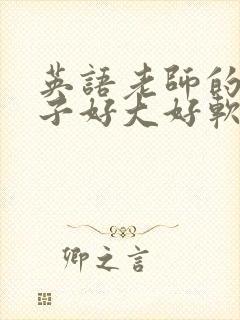 英語老師的
子好大好軟
卿之言